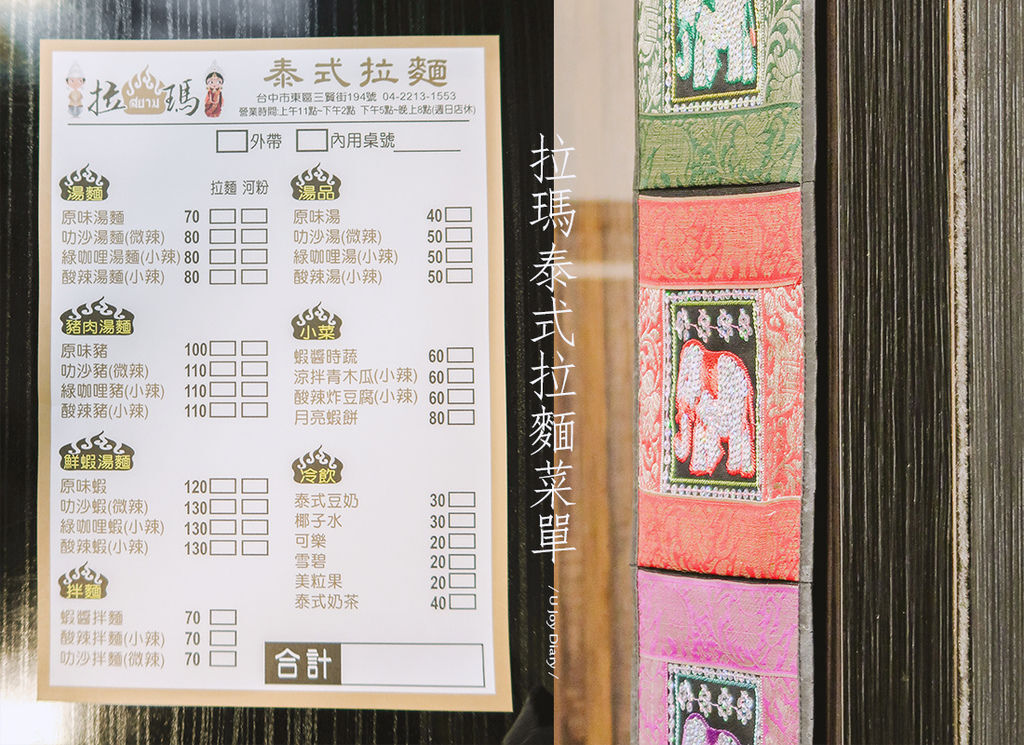 拉 สยาม 瑪 泰式拉麵
台中市東區三賢街194號 04-2213-1553
營業時間:上午11點~下午2點 下午5點~晚上8點(週日店休)
外帶 內用桌號
湯麵 拉麵 河粉
原味湯麵 70
叻沙湯麵(微辣) 80
綠咖哩湯麵(小辣) 80
酸辣湯麵(小辣) 80
豬肉湯麵
原味豬 100
叻沙豬(微辣) 110
綠咖哩豬(小辣) 110
酸辣豬(小辣) 110
鮮蝦湯麵
原味蝦 120
叻沙蝦(微辣) 130
綠咖哩蝦(小辣) 130
酸辣蝦(小辣) 130
拌麵
蝦醬拌麵 70
酸辣拌麵(小辣) 70
叻沙拌麵(微辣) 70
湯品
原味湯 40
叻沙湯(微辣) 50
綠咖哩湯(小辣) 50
酸辣湯(小辣) 50
小菜
蝦醬時蔬 60
涼拌青木瓜(小辣) 60
酸辣炸豆腐(小辣) 60
月亮蝦餅 80
冷飲
泰式豆奶 30
椰子水 30
可樂 20
雪碧 20
美粒果 20
泰式奶茶 40
合計
拉瑪泰式拉麵菜單
/ U Joy Diary /